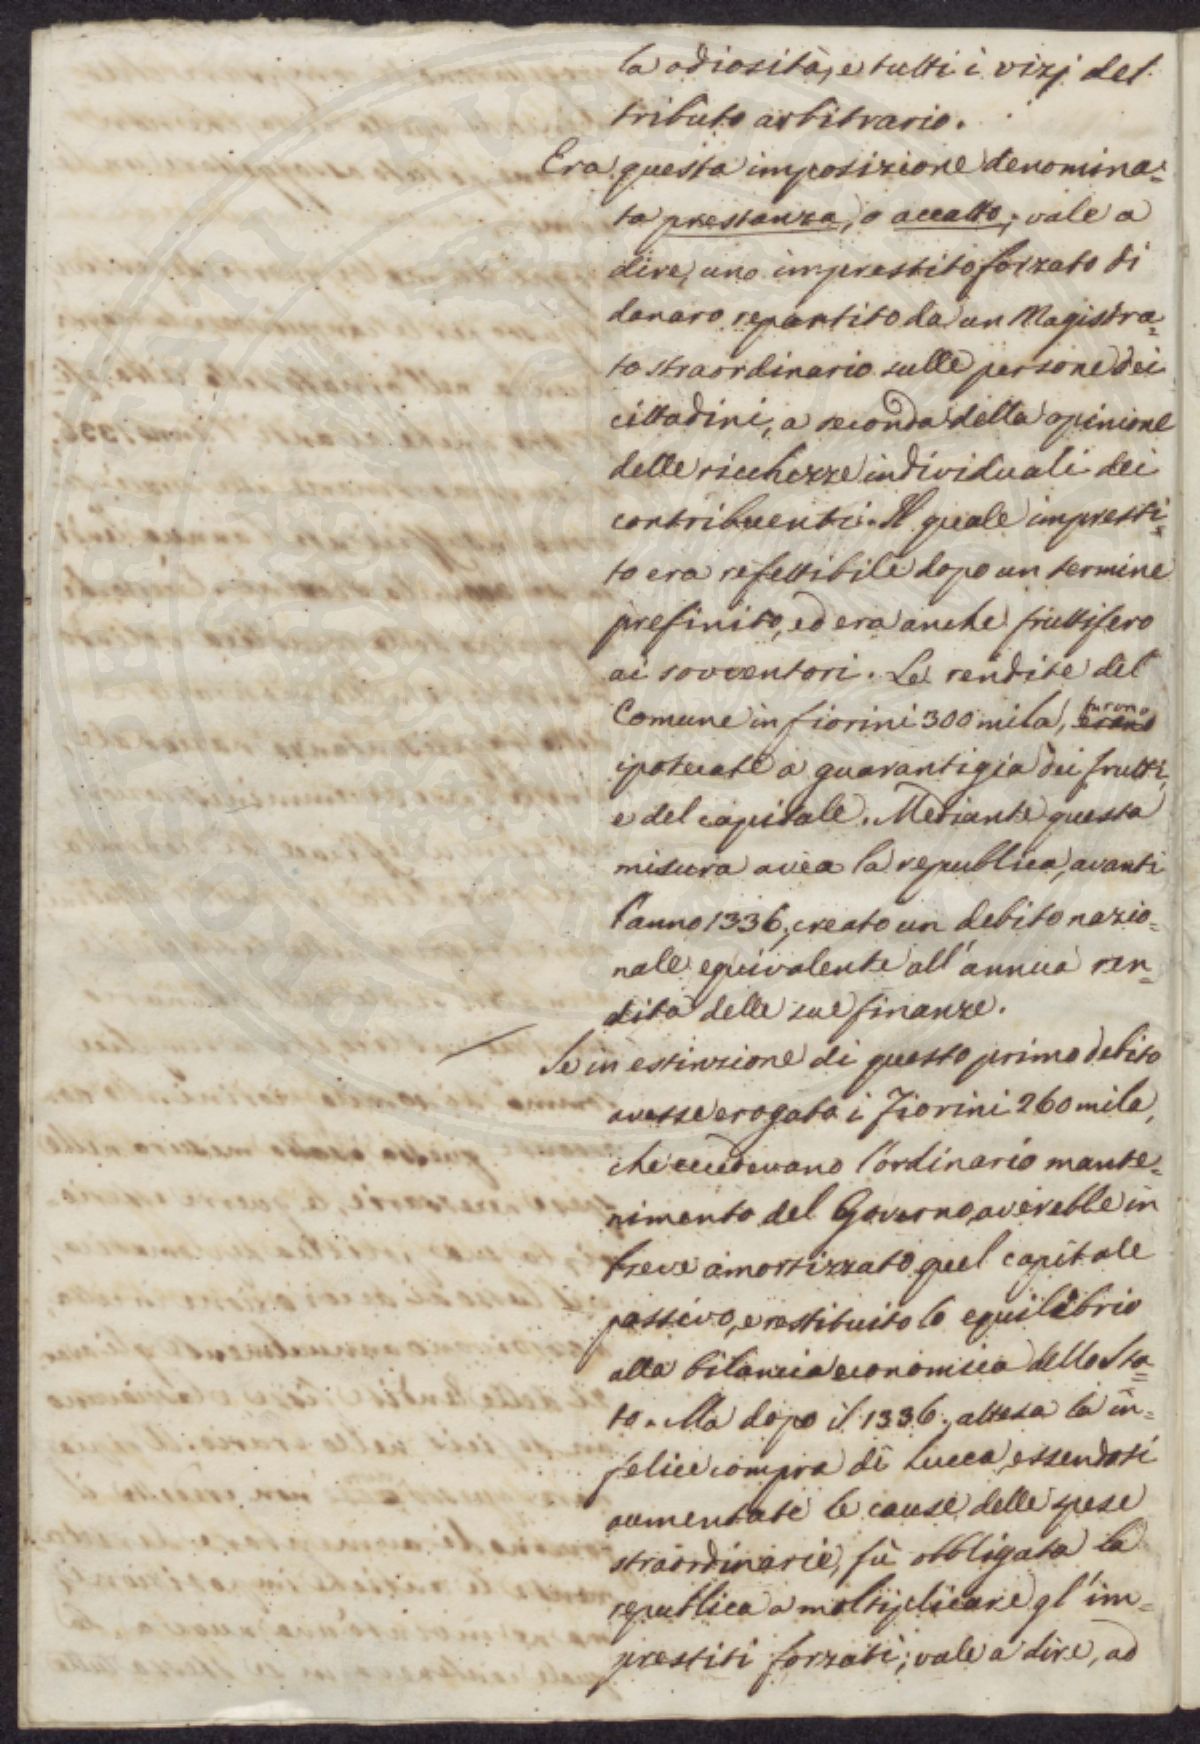 la odiosità, e tutti i vizj del
tributo arbitrario.
Era questa imposizione denomina=
ta prestanza, o accatto; vale a
dire, uno imprestito forzato di
danaro repartito da un Magistra=
to straordinario sulle persone dei
cittadini, a seconda della opinione
delle ricchezze individuali dei
contribuenti. Il quale impresti=
to era refettibile dopo un termine
prefinito, ed era anche fruttifero
ai sovventori. Le rendite del
Comune in fiorini 300 mila, furono
ipotecate a guarantigia dei frutti,
e del capitale. Mediante questa
misura avea la republica, avanti
l'anno 1336, creato un debito nazio=
nale equivalente all'annua ren=
dita delle sue finanze.
Se in estinzione di questo primo debito
avesse erogata i Fiorini 260 mila,
che eccedevano l'ordinario mante=
nimento del Governo, averebbe in
breve amortizzato quel capitale
passivo, e restituito lo equilibrio
alla bilancia economica dello Sta=
to. Ma dopo il 1336, attesa la in=
felice compra di Lucca, essendosi
aumentate le cause delle spese
straordinarie, fù obbligata la
republica a moltiplicare gl'im=
prestiti forzati; vale a dire, ad